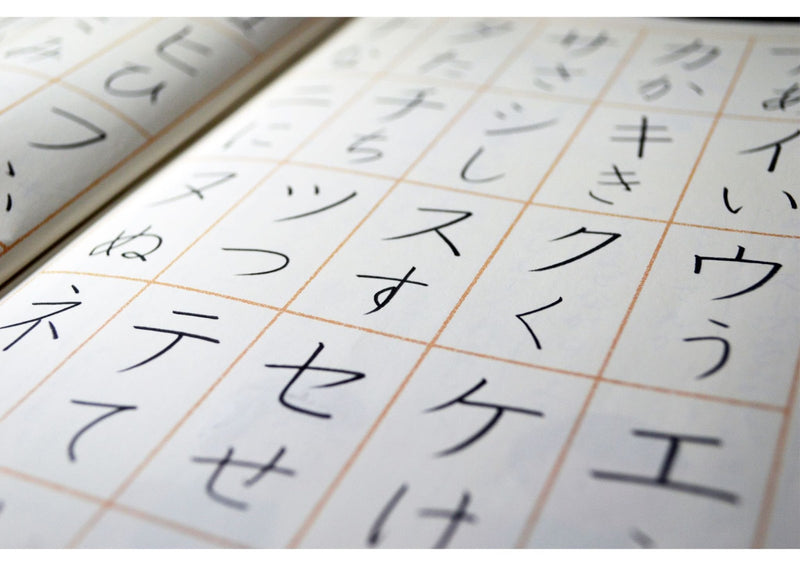 あイいウうエ
カかキきクくケけ
サさシしスすセせ
タたチちツつテて
なニにヌぬネ
ヒひフ
み